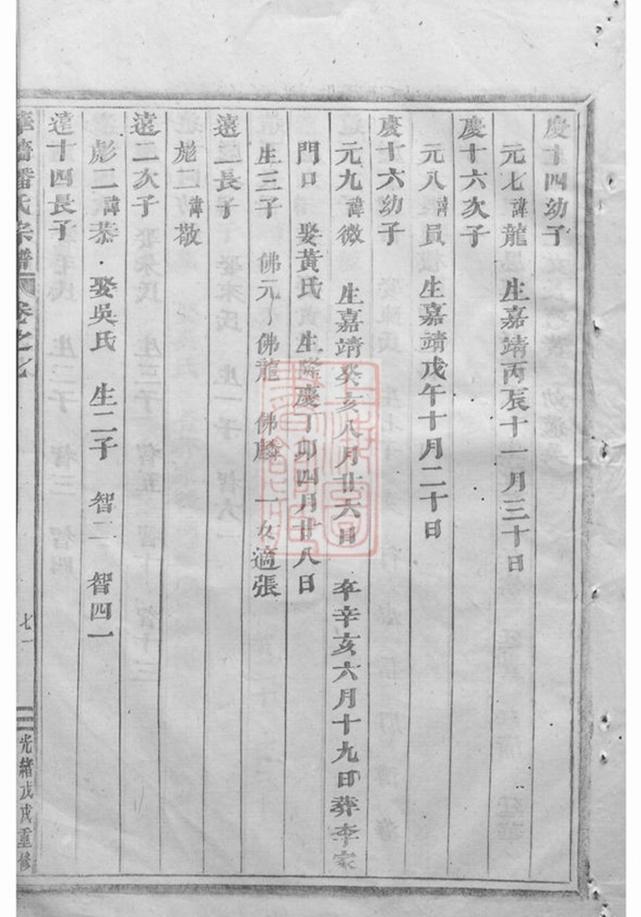 慶十四幼子
元七諱龍 生嘉靖丙辰十一月三十日
慶十六次子
元八諱員 生嘉靖戊午十月二十日
慶十六幼子
元九諱微 生嘉靖癸亥八月廿六日 卒辛亥六月十九日葬李家
門口 娶黃氏 生隆慶丁卯四月廿八日
生三子 佛元 佛龍 佛麟 一女適張
遠二長子
彪一諱敬
遠二次子
彪二諱恭 娶吳氏 生二子 智二 智四一
遠十四長子
潘氏宗譜 卷之七
七一
光緒戊戌重修